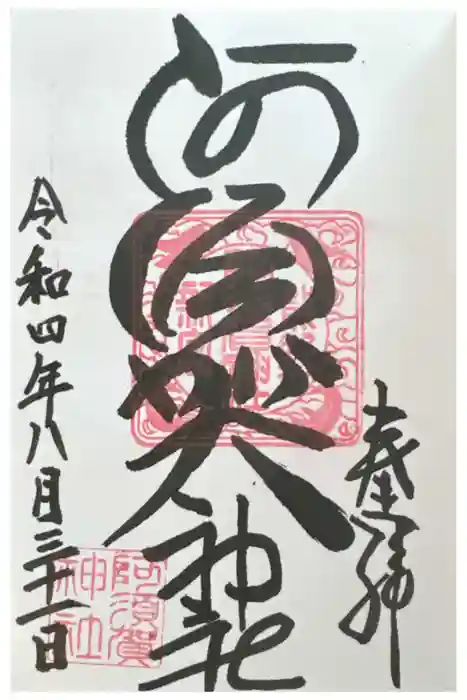 奉拝
阿須賀神社
令和四年八月三十一日
阿須賀
神社